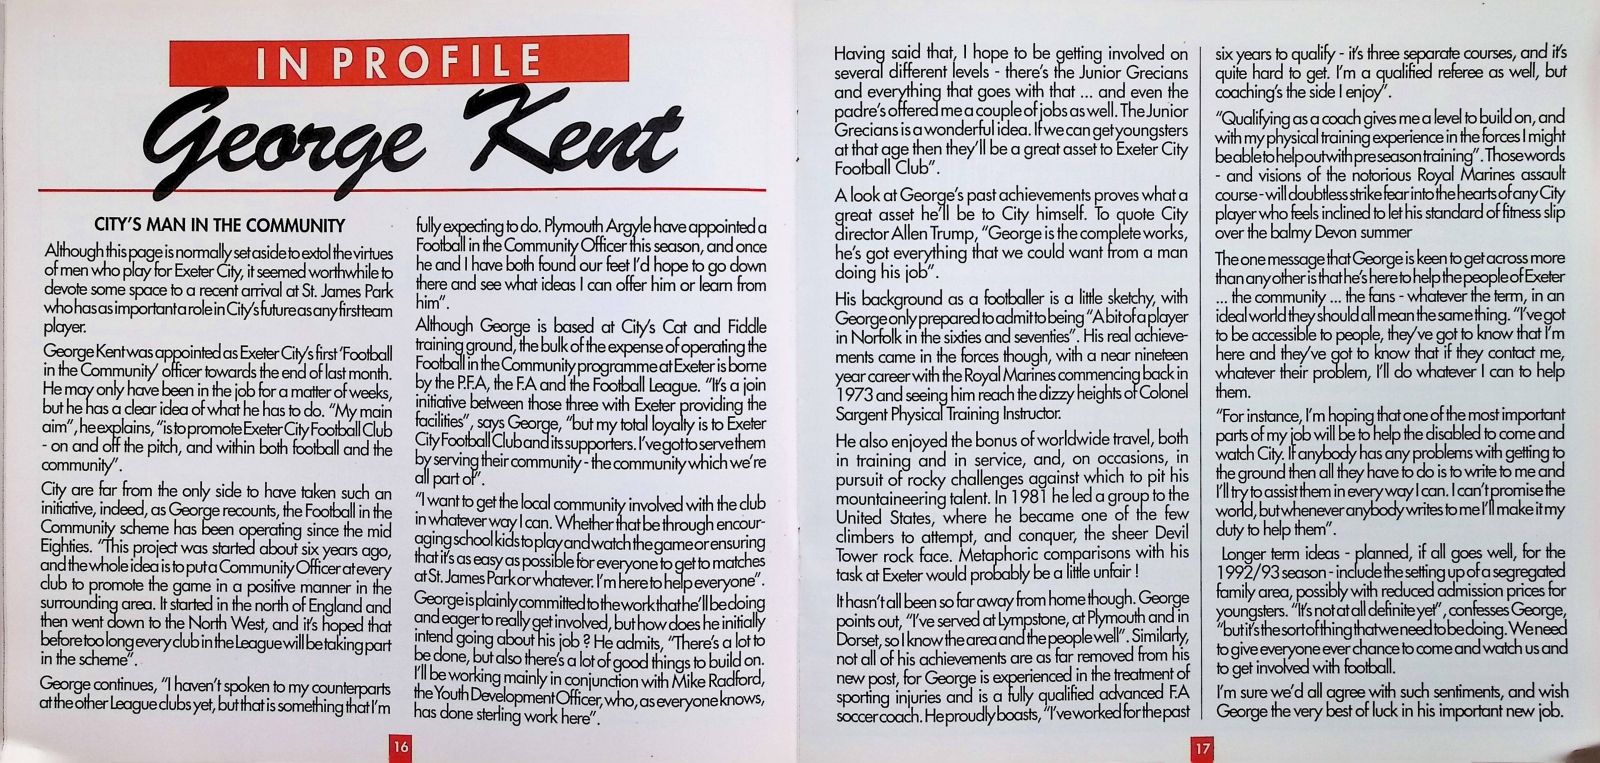 IN PROFILE
George Kent
CITY'S MAN IN THE COMMUNITY
Although this page is normally set aside to extol the virtues
of men who play for Exeter City, it seemed worthwhile to
devote some space to a recent arrival at St. James Park
who has as important a role in City's future as any first team
player.
George Kent was appointed as Exeter City's first 'Football
in the Community' officer towards the end of last month.
He may only have been in the job for a matter of weeks,
but he has a clear idea of what he has to do. "My main
aim", he explains, "is to promote Exeter City Football Club
- on and off the pitch, and within both football and the
community".
City are far from the only side to have taken such an
initiative, indeed, as George recounts, the Football in the
Community scheme has been operating since the mid
Eighties. "This project was started about six years ago,
and the whole idea is to put a Community Officer at every
club to promote the game in a positive manner in the
surrounding area. It started in the north of England and
then went down to the North West, and it's hoped that
before too long every club in the League will be taking part
in the scheme".
George continues, "I haven't spoken to my counterparts
at the other League clubs yet, but that is something that I'm
fully expecting to do. Plymouth Argyle have appointed a
Football in the Community Officer this season, and once
he and I have both found our feet I'd hope to go down
there and see what ideas I can offer him or learn from
him".
Although George is based at City's Cat and Fiddle
training ground, the bulk of the expense of operating the
Football in the Community programme at Exeter is borne
by the P.F.A, the F.A and the Football League. "It's a join
initiative between those three with Exeter providing the
facilities", says George, "but my total loyalty is to Exeter
City Football Club and its supporters. I've got to serve them
by serving their community - the community which we're
all part of".
"I want to get the local community involved with the club
in whatever way I can. Whether that be through encour-
aging school kids to play and watch the game or ensuring
that it's as easy as possible for everyone to get to matches
at St. James Park or whatever. I'm here to help everyone".
George is plainly committed to the work that he'll be doing
and eager to really get involved, but how does he initially
intend going about his job ? He admits, "There's a lot to
be done, but also there's a lot of good things to build on.
I'll be working mainly in conjunction with Mike Radford,
the Youth Development Officer, who, as everyone knows,
has done sterling work here".
16
Having said that, I hope to be getting involved on
several different levels - there's the Junior Grecians
and everything that goes with that ... and even the
padre's offered me a couple of jobs as well. The Junior
Grecians is a wonderful idea. If we can get youngsters
at that age then they'll be a great asset to Exeter City
Football Club".
A look at George's past achievements proves what a
great asset he'll be to City himself. To quote City
director Allen Trump, "George is the complete works,
he's got everything that we could want from a man
doing his job".
His background as a footballer is a little sketchy, with
George only prepared to admit to being "A bit of a player
in Norfolk in the sixties and seventies". His real achieve-
ments came in the forces though, with a near nineteen
year career with the Royal Marines commencing back in
1973 and seeing him reach the dizzy heights of Colonel
Sargent Physical Training Instructor.
He also enjoyed the bonus of worldwide travel, both
in training and in service, and, on occasions, in
pursuit of rocky challenges against which to pit his
mountaineering talent. In 1981 he led a group to the
United States, where he became one of the few
climbers to attempt, and conquer, the sheer Devil
Tower rock face. Metaphoric comparisons with his
task at Exeter would probably be a little unfair !
It hasn't all been so far away from home though. George
points out, "I've served at Lympstone, at Plymouth and in
Dorset, so I know the area and the people well". Similarly,
not all of his achievements are as far removed from his
new post, for George is experienced in the treatment of
sporting injuries and is a fully qualified advanced F.A
soccer coach. He proudly boasts, "I've worked for the past
17
six years to qualify - it's three separate courses, and it's
quite hard to get. I'm a qualified referee as well, but
coaching's the side I enjoy".
"Qualifying as a coach gives me a level to build on, and
with my physical training experience in the forces I might
be able to help out with pre season training". Those words
- and visions of the notorious Royal Marines assault
course - will doubtless strike fear into the hearts of any City
player who feels inclined to let his standard of fitness slip
over the balmy Devon summer
The one message that George is keen to get across more
than any other is that he's here to help the people of Exeter
... the community ... the fans - whatever the term, in an
ideal world they should all mean the same thing. "I've got
to be accessible to people, they've got to know that I'm
here and they've got to know that if they contact me,
whatever their problem, I'll do whatever I can to help
them.
"For instance, I'm hoping that one of the most important
parts of my job will be to help the disabled to come and
watch City. If anybody has any problems with getting to
the ground then all they have to do is to write to me and
I'll try to assist them in every way I can. I can't promise the
world, but whenever anybody writes to me I'll make it my
duty to help them".
Longer term ideas - planned, if all goes well, for the
1992/93 season - include the setting up of a segregated
family area, possibly with reduced admission prices for
youngsters. "It's not at all definite yet", confesses George,
"but it's the sort of thing that we need to be doing. We need
to give everyone ever chance to come and watch us and
to get involved with football.
I'm sure we'd all agree with such sentiments, and wish
George the very best of luck in his important new job.